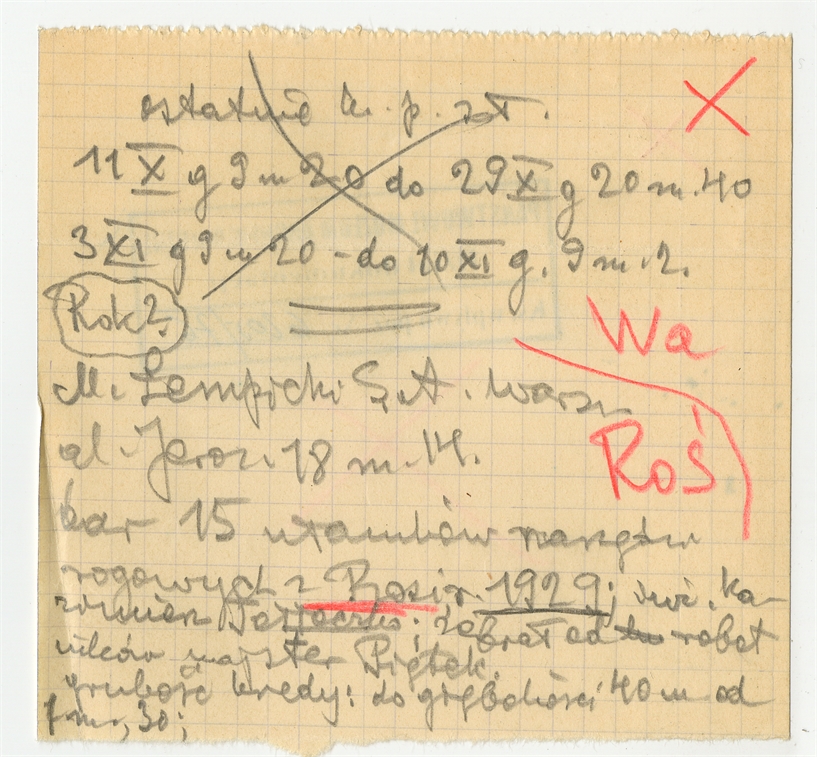 ostatnie k. p. zł.
11 X g 9 m 20 do 29 X g 20 m. 40
3 XI g 9 m 20 - do 10 XI g. 9 m. 2.
Rok?
Wa
M. Łempicki S. A. Warsz
al. Jeroz. 18 m. 14.
Roś
15 ułamków
rogowych z Rosi r. 1929; inż. Ka-
zimierz zebrał od robot
ników majster Piątek.
grubość kredy: do głębokości 40 m od
30;